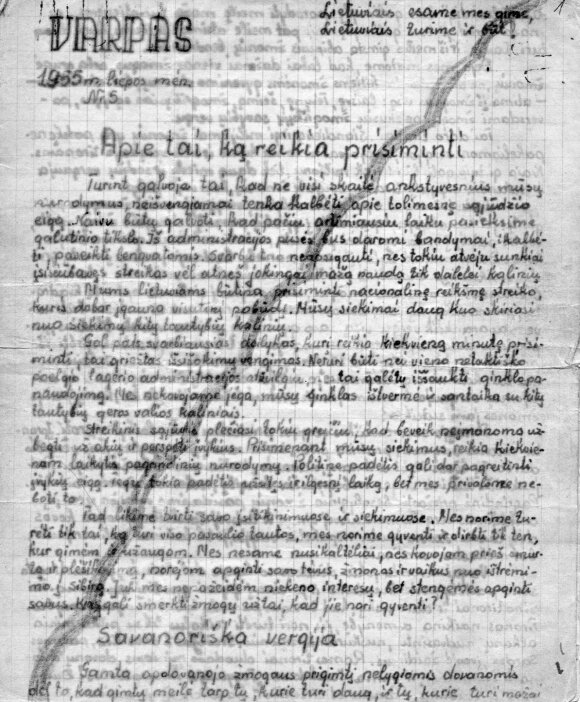 Lietuviais esame mes gimę,
Lietuviais turime ir būt!
VARPAS
1955 m. liepos mėn.
Nr. 5
Apie tai, ką reikia prisiminti
Turint galvoje tai, kad ne visi skaitė ankstyvesnius mūsų
nurodymus neišvengiamai tenka kalbėti apie tolimesnę sąjūdžio
eigą. Naivu būtų galvoti, kad pačiu artimiausiu laiku pasieksime
galutinio tikslo. Iš administracijos pusės bus daromi bandymai, įkalbė-
ti, paveikti lengvatomis. Svarbu tuo nepasigauti, nes tokiu atveju sunkiai
įsisiūbavęs streikas vėl atneš jokingai mažą naudą tik dalelei kalinių
Mums lietuviams būtina prisiminti nacionalinę reikšmę streiko,
kuris dabar įgauna visuotinį pobūdį. Mūsų siekimai daug kuo skiriasi
nuo siekimų kitų tautybių kalinių.
Gal pats svarbiausias dalykas, kurį reikia kiekvieną minutę prisi-
minti, tai griežtas išsišokimų vengimas. Neturi būti nei vieno netaktiško
poelgio lagerio administracijos atžvilgiu, tai galėtų iššaukti ginklo pa-
naudojimą. Mes nekovojame jėga, mūsų ginklas ištvermė ir santaika su kitų
tautybių geros valios kaliniais.
Streikinis sąjūdis plečiasi tokiu greičiu, kad beveik neįmanoma už-
bėgti už akių ir perspėti įvykius. Prisimenant mūsų siekimus, reikia kiekvie-
nam laikytis pagrindinių nurodymų. Politinė padėtis gali dar pagreitinti
įvykių eigą, tokia padėtis užsitęs ir ilgesnį laiką, bet mes privalome ne-
boti to.
Tad likime tvirti savo įsitikinimuose ir siekimuose. Mes norime tu-
rėti tik tai, ką turi viso pasaulio tautos, mes norime gyventi ir dirbti tik ten,
kur gimėm ir užaugom. Mes nesame nusikaltėliai, nes kovojam prieš smur-
tą ir plėšikavimą, norėjom apginti savo tėvus, žmonas ir vaikus nuo ištrėmi-
mo į Sibirą. Juk mes nepažeidėm niekeno interesų, bet stengėmės apginti
savus. Kas gali smerkti žmogų už tai, kad jis nori gyventi?
Savanoriška vergija
Gamta apdovanojo žmogaus prigimtį nelygiomis dovanomis
dėl to, kad gimtų meilė tarp tų, kurie turi daug, ir tų, kurie turi mažai